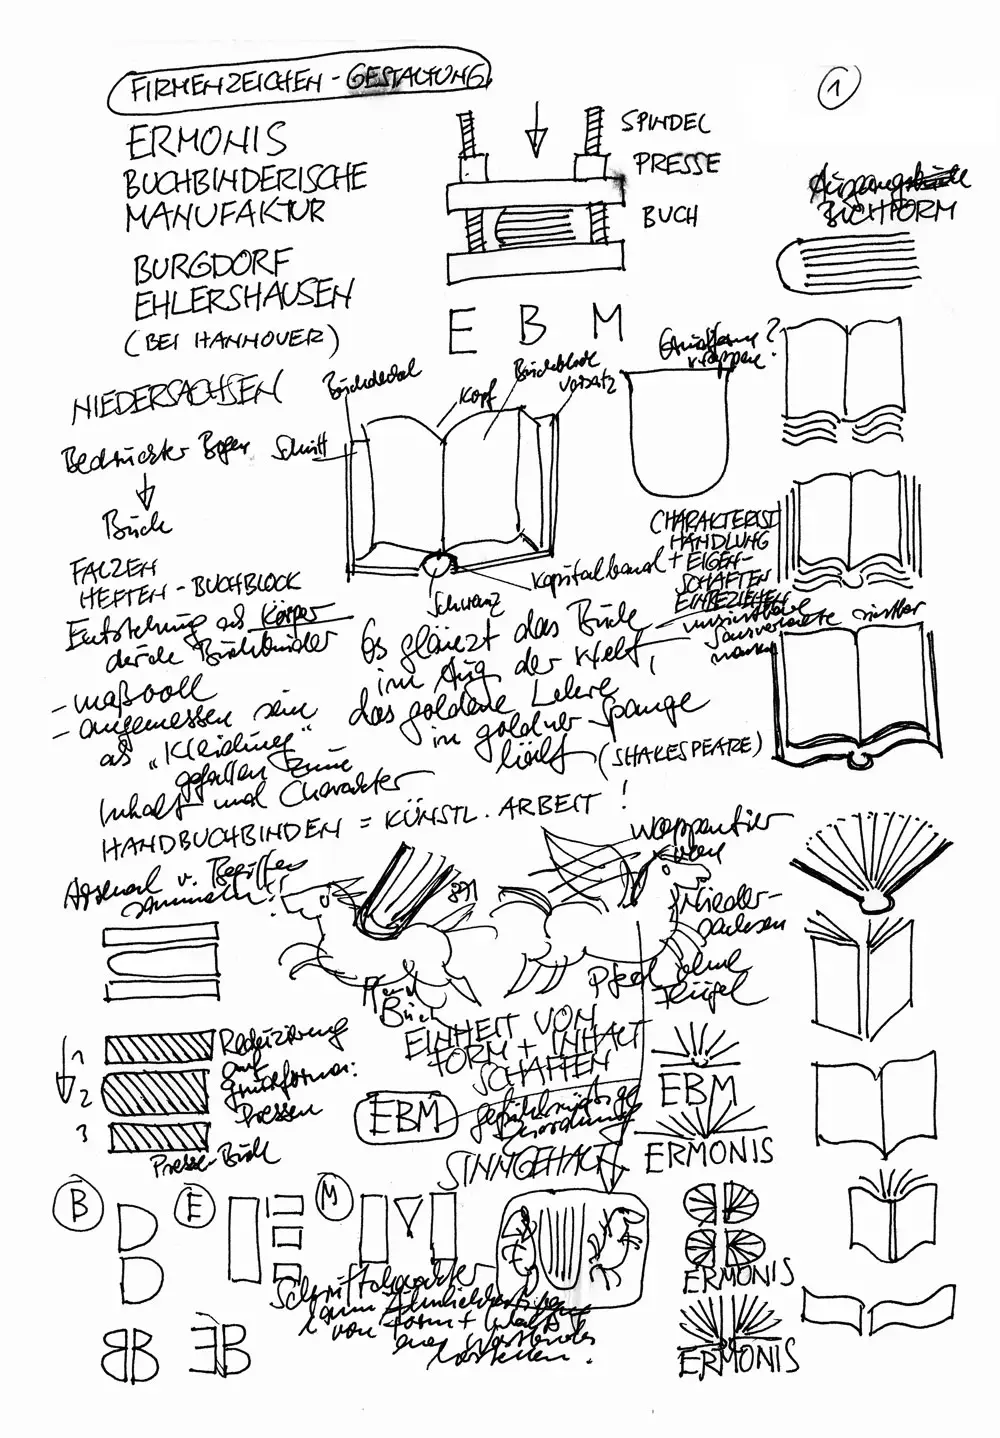 FIRMENZEICHEN - GESTALTUNG
1
ERMONIS
BUCHBINDERISCHE
MANUFAKTUR
BURGDORF
EHLERSHAUSEN
(BEI HANNOVER)
NIEDERSACHSEN
SPINDEL
PRESSE
BUCH
E B M
BUCHFORM
Buchdeckel
Kopf
Buchblock
Vorsatz
Schnitt
Kapitalband
Schwanz
Bedruckter Bogen
Buch
FALZEN
HEFTEN - BUCHBLOCK
Entstehung als Körper
durch Buchbinder
- maßvoll
- angemessen sein
als "Kleidung"
gefallen zum
Inhalt und Charakter
HANDBUCHBINDEN = KÜNSTL. ARBEIT !
CHARAKTERIST
HANDLUNG
+ EIGEN-
SCHAFTEN
EINBEZIEHEN
Es glänzt das Buch
im Aug der Welt,
das goldene Lehre
in goldner Spange
hält (SHAKESPEARE)
Arsenal v. Begriffen
sammeln!!
Wappentier
von
Nieder-
sachsen
Pferd ohne
Flügel
EINHEIT VON
FORM + INHALT
SCHAFFEN
1
2
3
Reduzierung
auf
Grundformen:
Pressen
Presse-Buch
EBM
SINNGEHALT
EBM
ERMONIS
B
E
M
Schriftcharakter
von Form + Inhalt
ERMONIS
ERMONIS